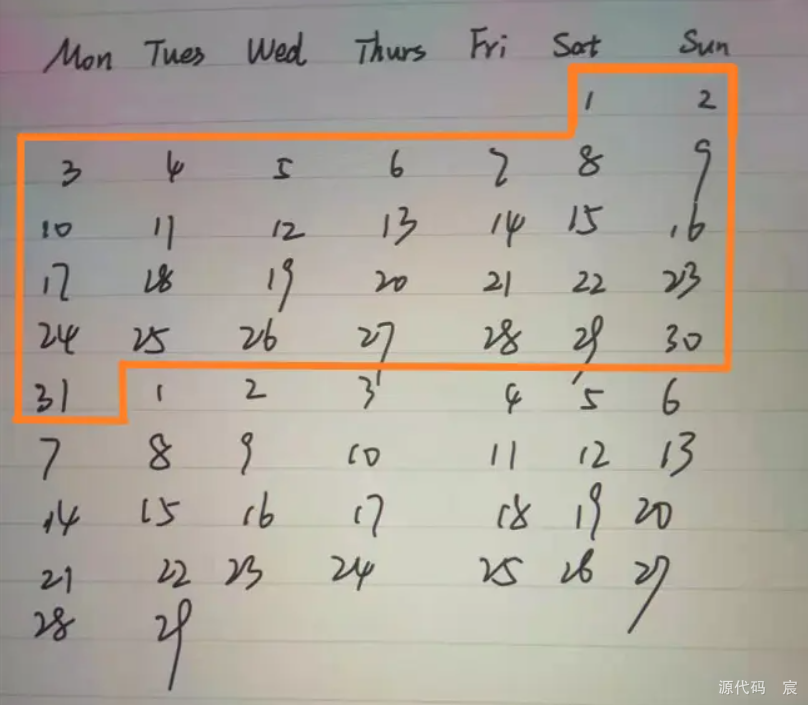 Mon Tues Wed Thurs Fri Sat Sun
1 2
3 4 5 6 7 8 9
10 11 12 13 14 15 16
17 18 19 20 21 22 23
24 25 26 27 28 29 30
31 1 2 3 4 5 6
7 8 9 10 11 12 13
14 15 16 17 18 19 20
21 22 23 24 25 26 27
28 29
源代码 宸